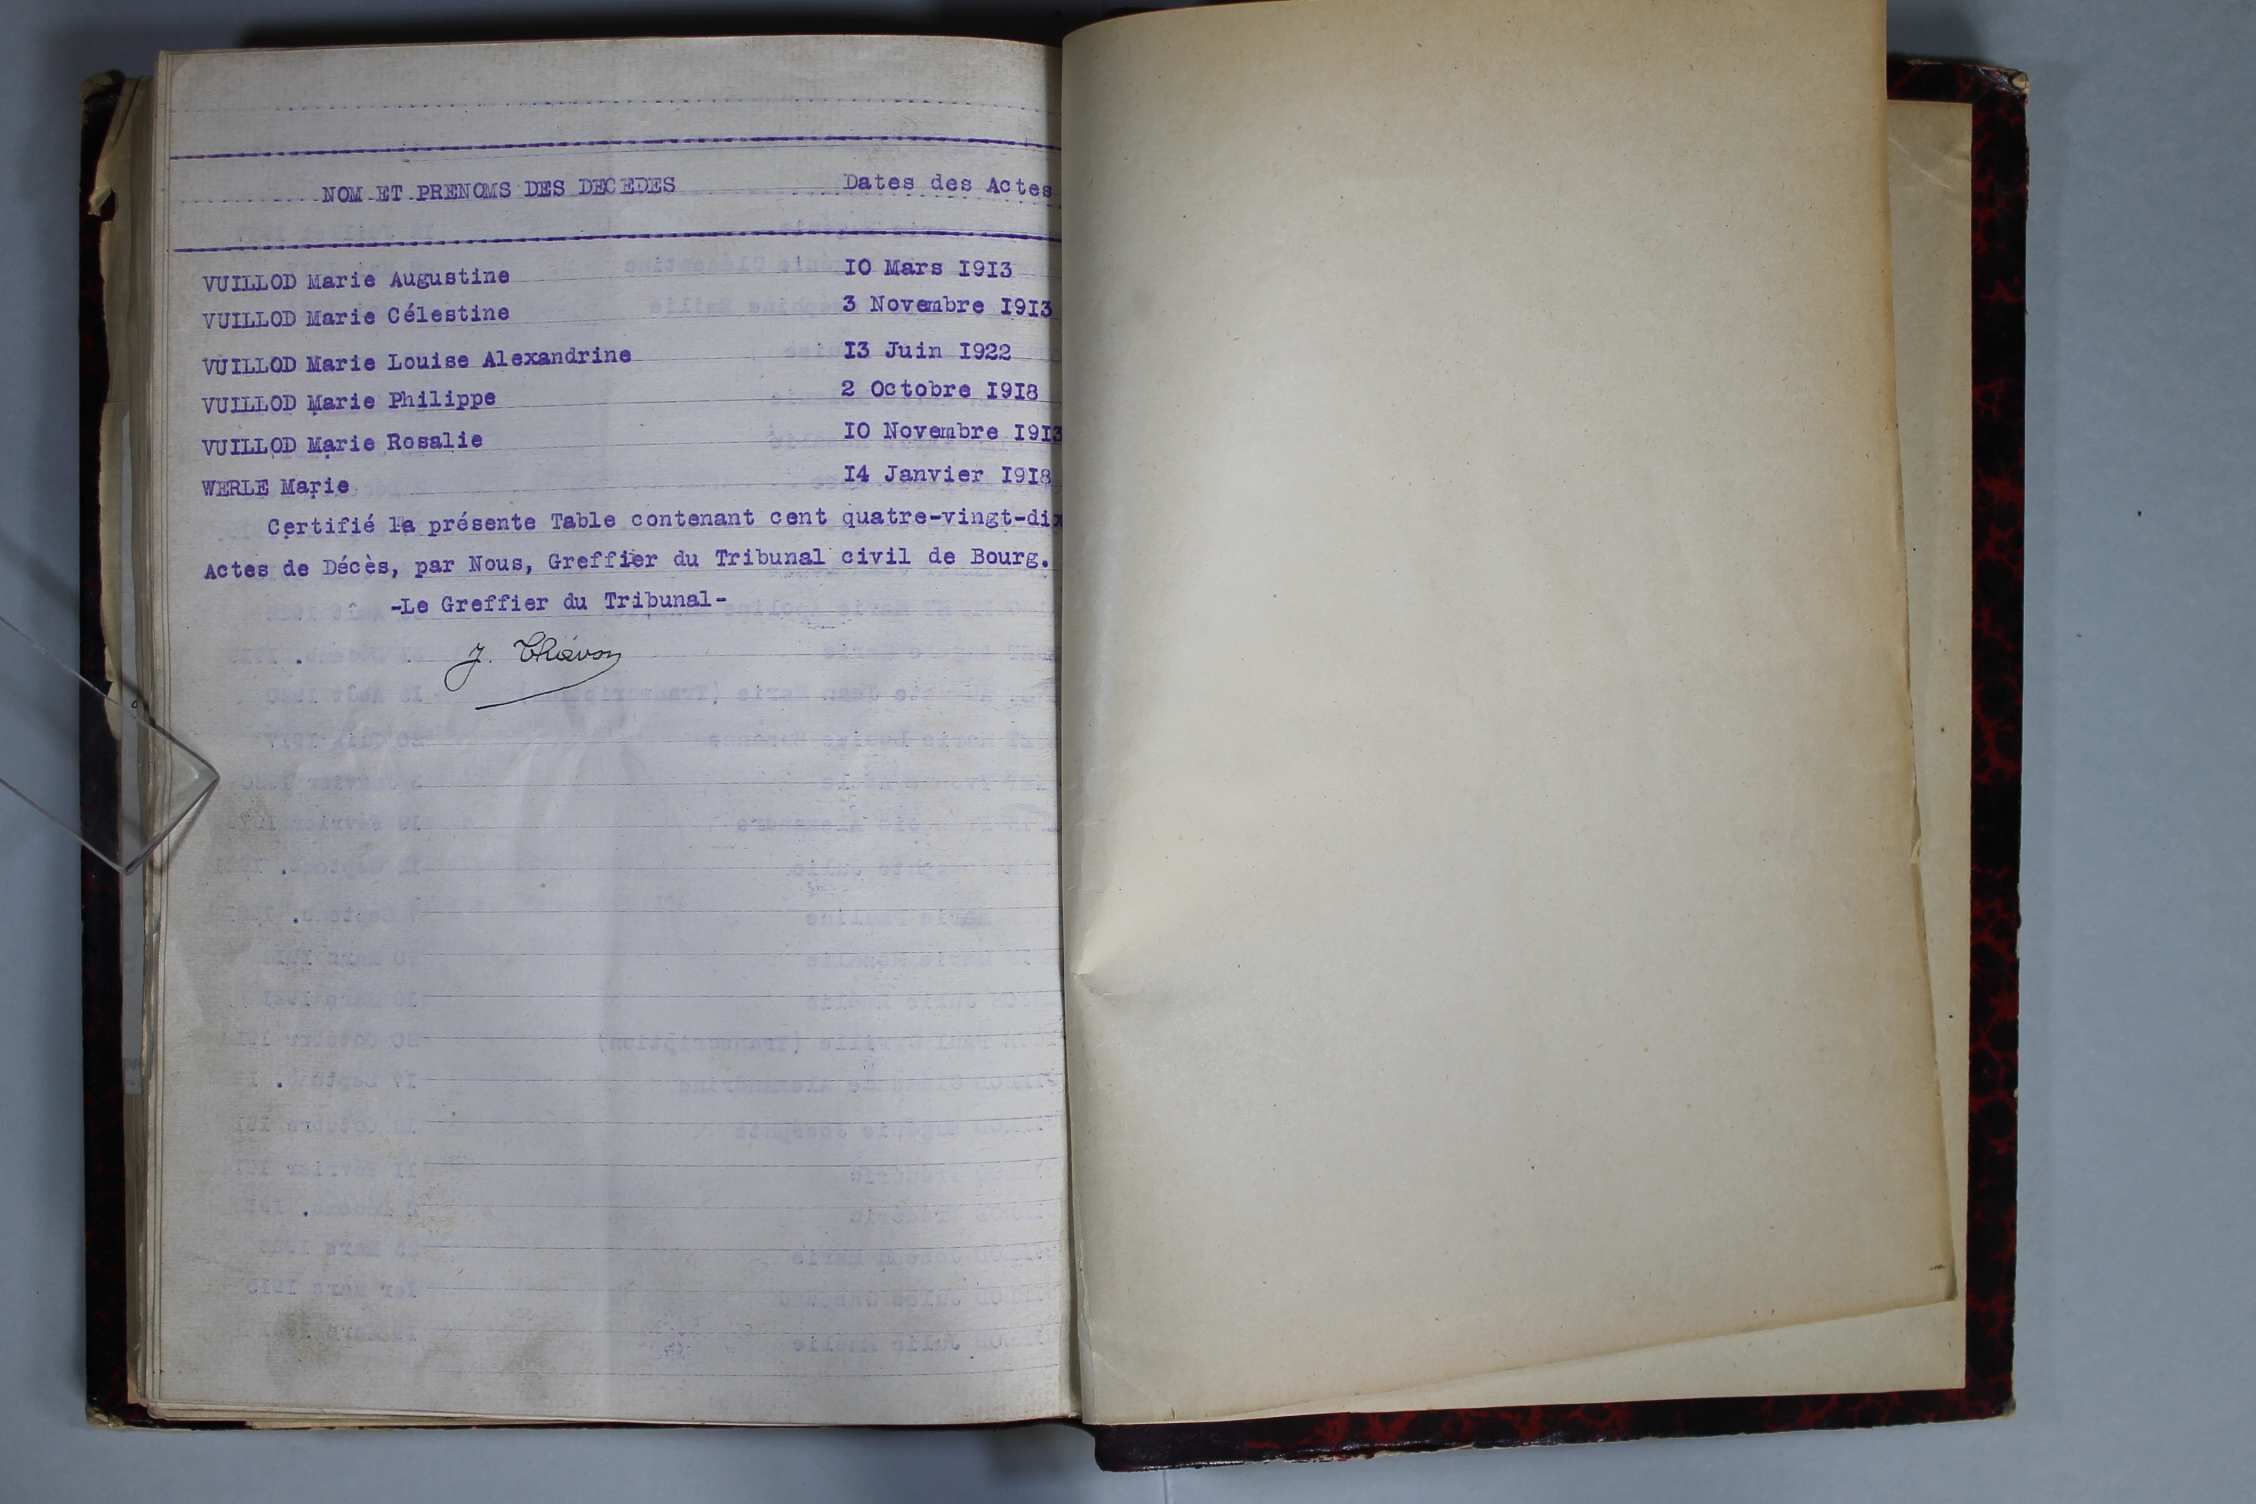 NOM ET PRENOMS DES DECEDES Dates des Actes
VUILLOD Marie Augustine 10 Mars 1913
VUILLOD Marie Célestine 3 Novembre 1913
VUILLOD Marie Louise Alexandrine 13 Juin 1922
VUILLOD Marie Philippe 2 Octobre 1918
VUILLOD Marie Rosalie 10 Novembre 1913
WERLE Marie 14 Janvier 1918
Certifié la présente Table contenant cent quatre-vingt-dix
Actes de Décès, par Nous, Greffier du Tribunal civil de Bourg.
-Le Greffier du Tribunal-
J.